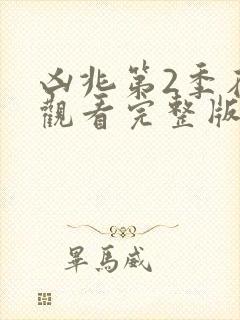 凶兆第2季在
觀看完整版
畢馬威